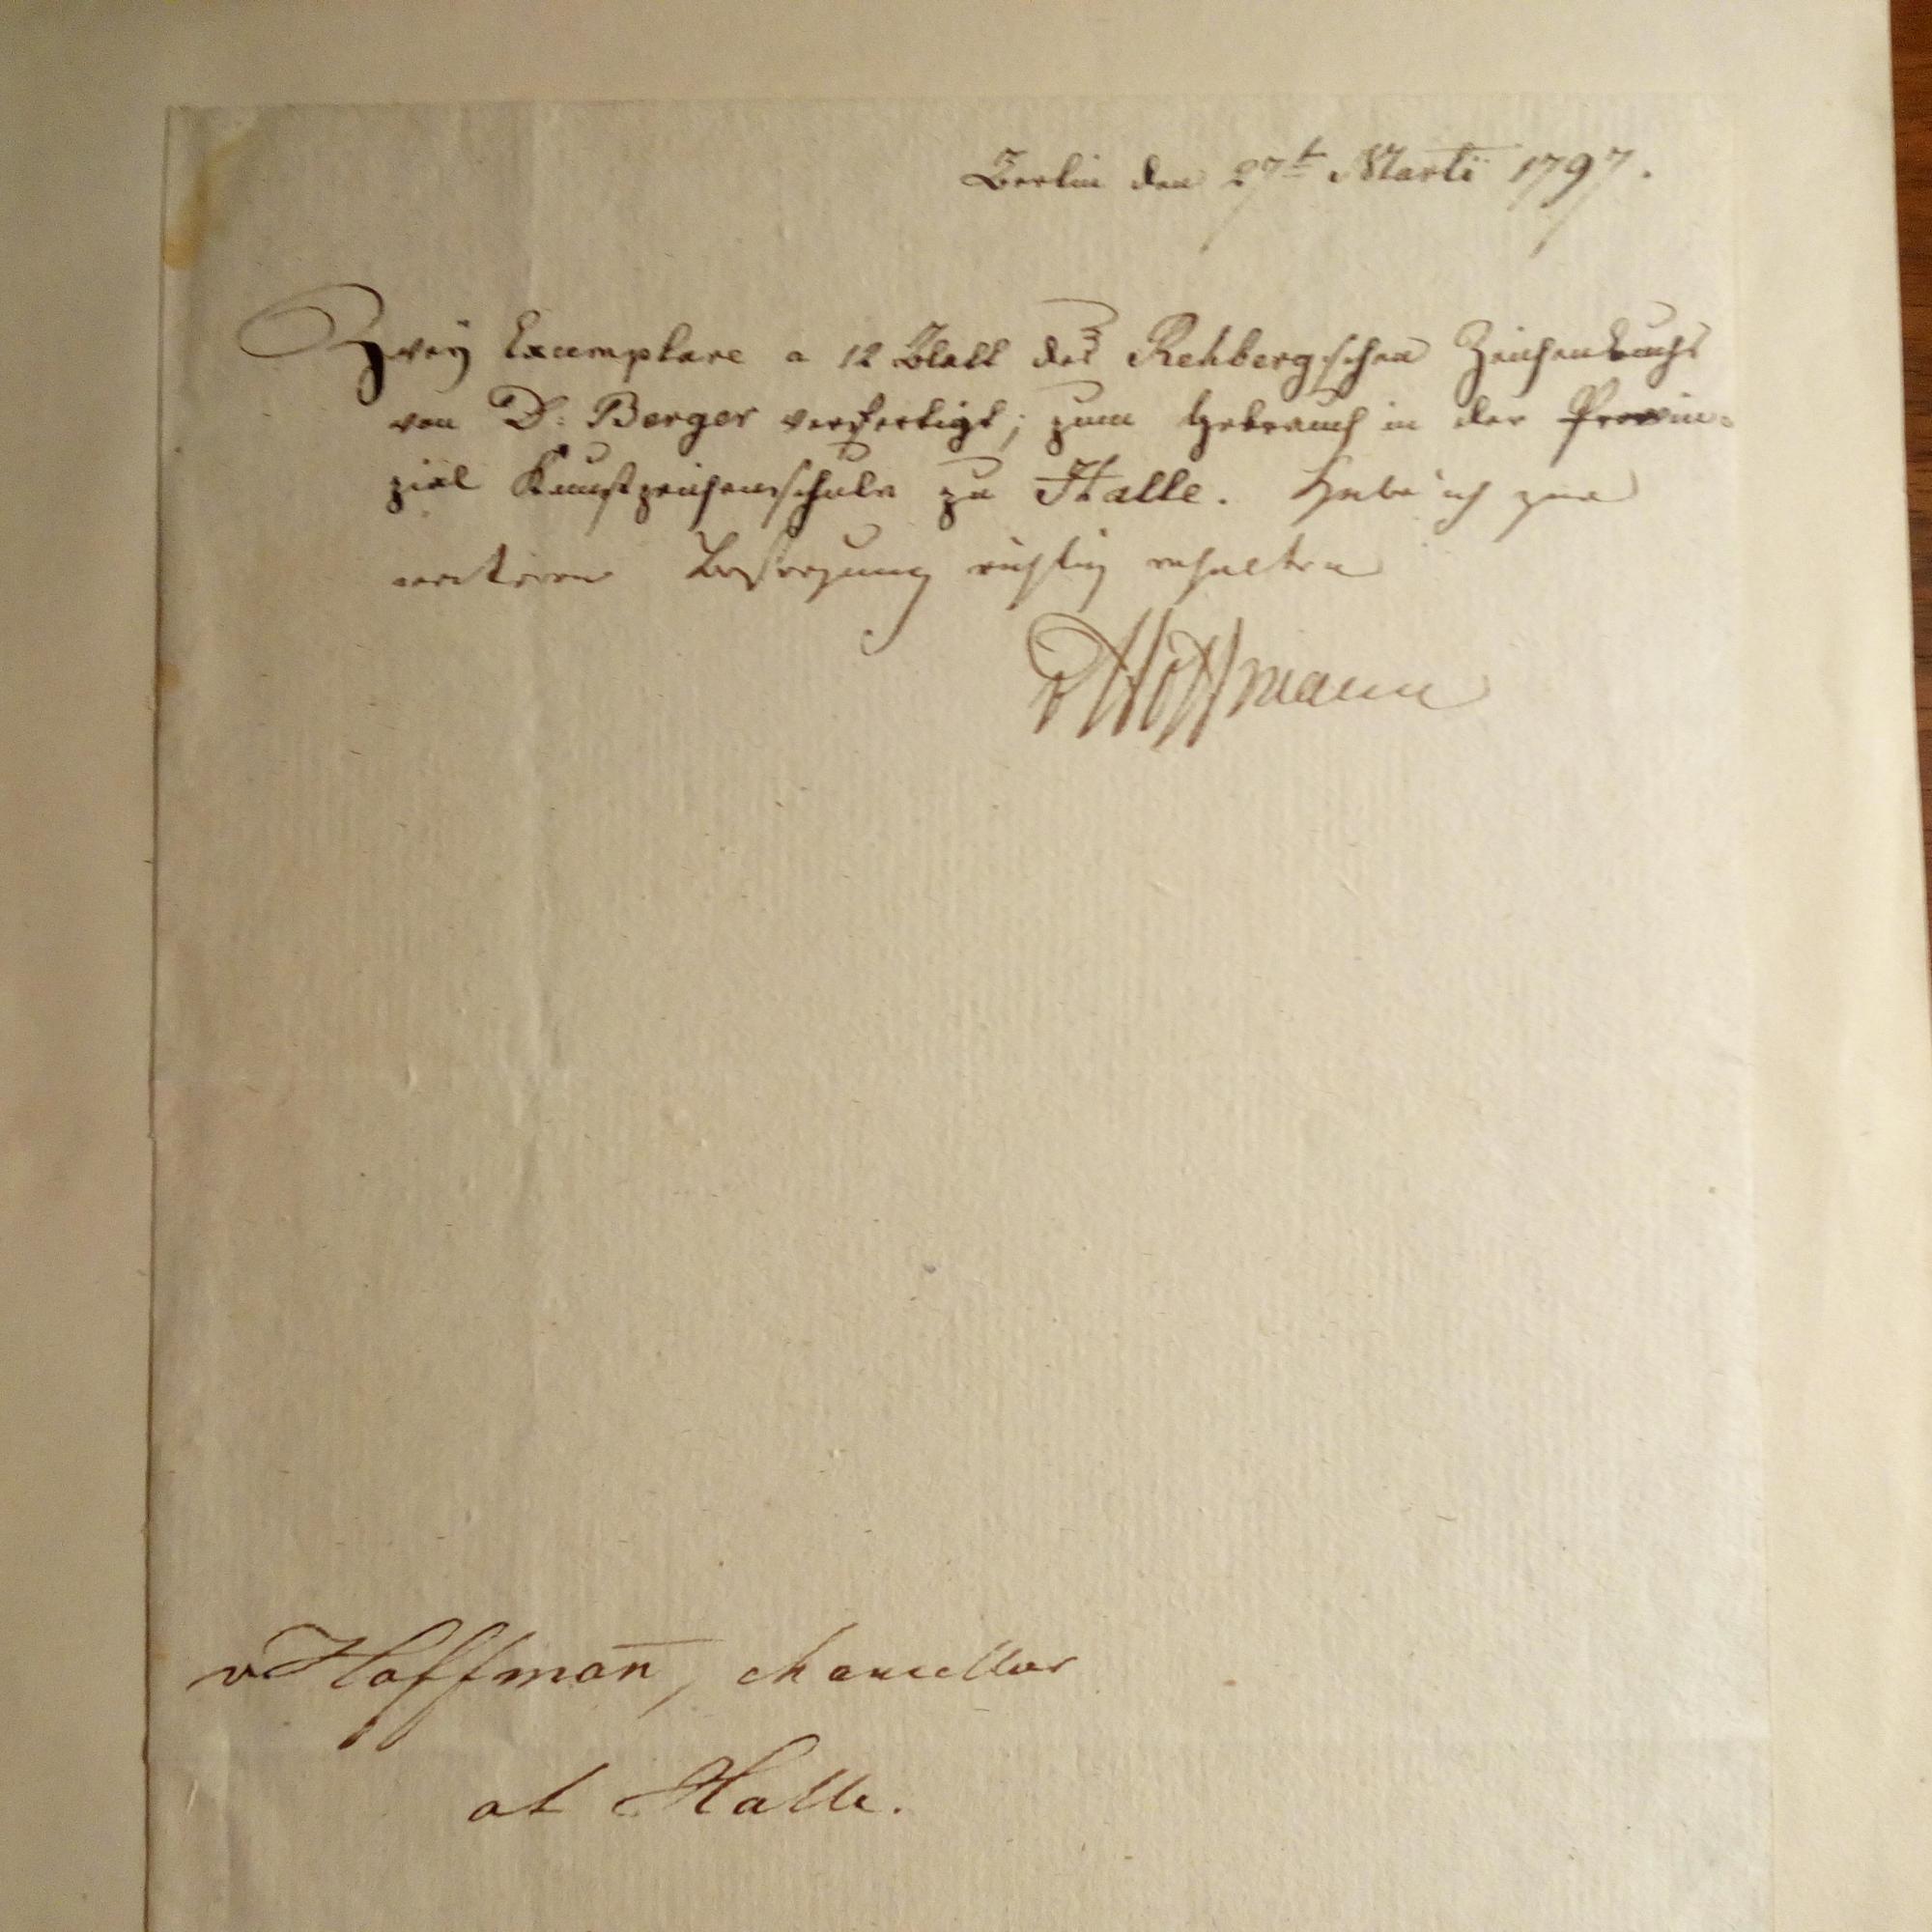 Berlin den 27t Martii 1797.
Zwey Exemplare a 12 Blatt des Rehbergschen Zeichenbuchs
von D: Berger verfertigt; zum Gebrauch in der Provin-
zial Kunstzeichenschule zu Halle. Habe ich zur
weiteren Besorgung richtig erhalten
v Hoffmann
v Hoffman̄, chancellor
at Halle.